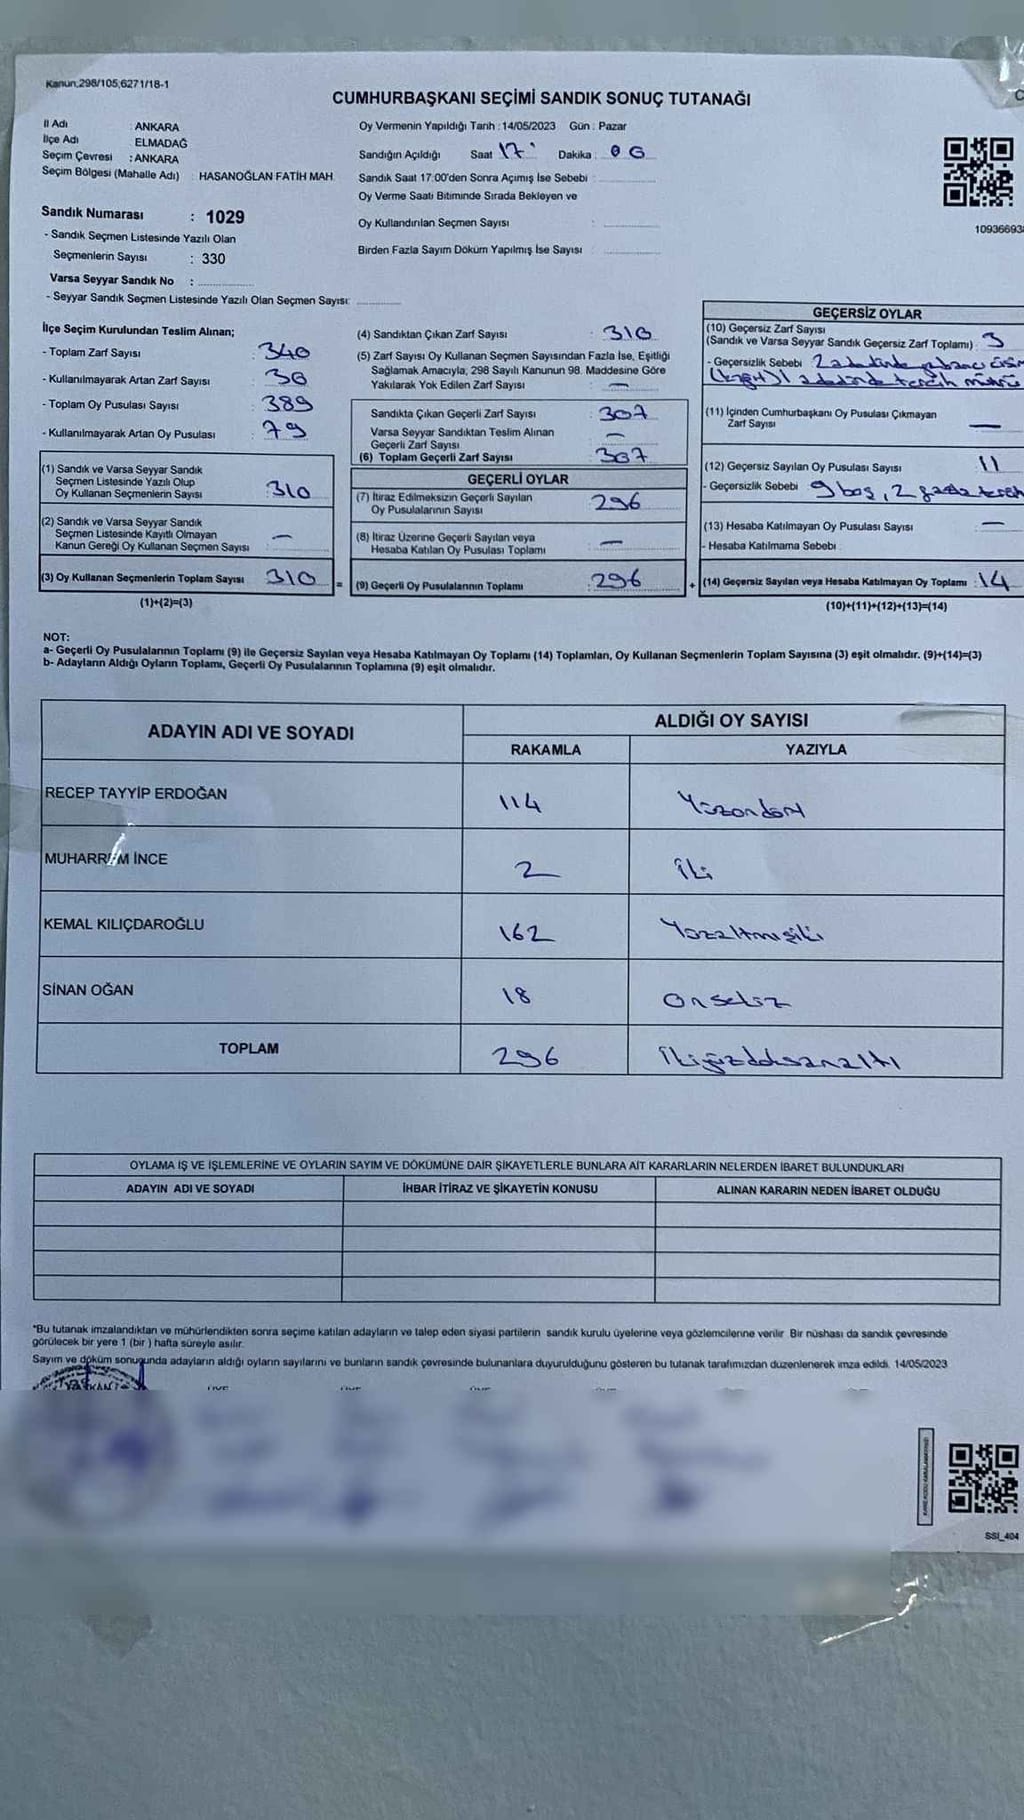 Kanun;298/105,6271/18-1
CUMHURBAŞKANI SEÇİMİ SANDIK SONUÇ TUTANAĞI
İl Adı : ANKARA
İlçe Adı ELMADAĞ
Seçim Çevresi : ANKARA
Seçim Bölgesi (Mahalle Adı) : HASANOĞLAN FATİH MAH.
Sandık Numarası : 1029
- Sandık Seçmen Listesinde Yazılı Olan
Seçmenlerin Sayısı : 330
Varsa Seyyar Sandık No :
- Seyyar Sandık Seçmen Listesinde Yazılı Olan Seçmen Sayısı:
Oy Vermenin Yapıldığı Tarih : 14/05/2023 Gün : Pazar
Sandığın Açıldığı Saat 17 Dakika :
Sandık Saat 17:00'den Sonra Açımış İse Sebebi :
Oy Verme Saati Bitiminde Sırada Bekleyen ve
Oy Kullandırılan Seçmen Sayısı :
Birden Fazla Sayım Döküm Yapılmış İse Sayısı :
10936693
İlçe Seçim Kurulundan Teslim Alınan;
- Toplam Zarf Sayısı : 340
- Kullanılmayarak Artan Zarf Sayısı : 30
- Toplam Oy Pusulası Sayısı : 389
- Kullanılmayarak Artan Oy Pusulası : 79
(1) Sandık ve Varsa Seyyar Sandık
Seçmen Listesinde Yazılı Olup
Oy Kullanan Seçmenlerin Sayısı : 310
(2) Sandık ve Varsa Seyyar Sandık
Seçmen Listesinde Kayıtlı Olmayan
Kanun Gereği Oy Kullanan Seçmen Sayısı : —
(3) Oy Kullanan Seçmenlerin Toplam Sayısı : 310
(1)+(2)=(3)
(4) Sandıktan Çıkan Zarf Sayısı : 310
(5) Zarf Sayısı Oy Kullanan Seçmen Sayısından Fazla İse, Eşitliği
Sağlamak Amacıyla, 298 Sayılı Kanunun 98. Maddesine Göre
Yakılarak Yok Edilen Zarf Sayısı : —
Sandıkta Çıkan Geçerli Zarf Sayısı : 307
Varsa Seyyar Sandıktan Teslim Alınan
Geçerli Zarf Sayısı : —
(6) Toplam Geçerli Zarf Sayısı : 307
GEÇERLİ OYLAR
(7) İtiraz Edilmeksizin Geçerli Sayılan
Oy Pusulalarının Sayısı : 296
(8) İtiraz Üzerine Geçerli Sayılan veya
Hesaba Katılan Oy Pusulası Toplamı : —
= (9) Geçerli Oy Pusulalarının Toplamı : 296
GEÇERSİZ OYLAR
(10) Geçersiz Zarf Sayısı
(Sandık ve Varsa Seyyar Sandık Geçersiz Zarf Toplamı) : 3
- Geçersizlik Sebebi : 2 adetinde yabancı
1 adetinde tercih mührü
(11) İçinden Cumhurbaşkanı Oy Pusulası Çıkmayan
Zarf Sayısı —
(12) Geçersiz Sayılan Oy Pusulası Sayısı 11
- Geçersizlik Sebebi : 9 boş, 2
(13) Hesaba Katılmayan Oy Pusulası Sayısı —
- Hesaba Katılmama Sebebi :
+ (14) Geçersiz Sayılan veya Hesaba Katılmayan Oy Toplamı : 14
(10)+(11)+(12)+(13)=(14)
NOT:
a- Geçerli Oy Pusulalarının Toplamı (9) ile Geçersiz Sayılan veya Hesaba Katılmayan Oy Toplamı (14) Toplamları, Oy Kullanan Seçmenlerin Toplam Sayısına (3) eşit olmalıdır. (9)+(14)=(3)
b- Adayların Aldığı Oyların Toplamı, Geçerli Oy Pusulalarının Toplamına (9) eşit olmalıdır.
ADAYIN ADI VE SOYADI ALDIĞI OY SAYISI
RAKAMLA YAZIYLA
RECEP TAYYİP ERDOĞAN 114 Yüzondört
MUHARREM İNCE 2 İki
KEMAL KILIÇDAROĞLU 162 Yüzaltmışiki
SİNAN OĞAN 18 Onsekiz
TOPLAM 296 İkiyüzdoksanaltı
OYLAMA İŞ VE İŞLEMLERİNE VE OYLARIN SAYIM VE DÖKÜMÜNE DAİR ŞİKAYETLERLE BUNLARA AİT KARARLARIN NELERDEN İBARET BULUNDUKLARI
ADAYIN ADI VE SOYADI İHBAR İTİRAZ VE ŞİKAYETİN KONUSU ALINAN KARARIN NEDEN İBARET OLDUĞU
*Bu tutanak imzalandıktan ve mühürlendikten sonra seçime katılan adayların ve talep eden siyasi partilerin sandık kurulu üyelerine veya gözlemcilerine verilir. Bir nüshası da sandık çevresinde
görülecek bir yere 1 (bir) hafta süreyle asılır.
Sayım ve döküm sonucunda adayların aldığı oyların sayılarını ve bunların sandık çevresinde bulunanlara duyurulduğunu gösteren bu tutanak tarafımızdan düzenlenerek imza edildi. 14/05/2023
SSI_404